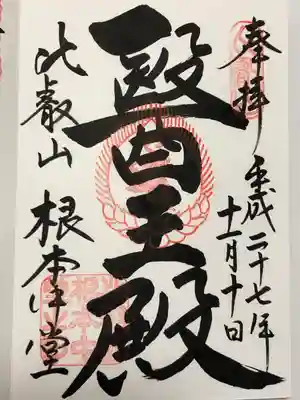 奉拝
平成二十七年
十二月十日
醫王殿
比叡山
根本中堂